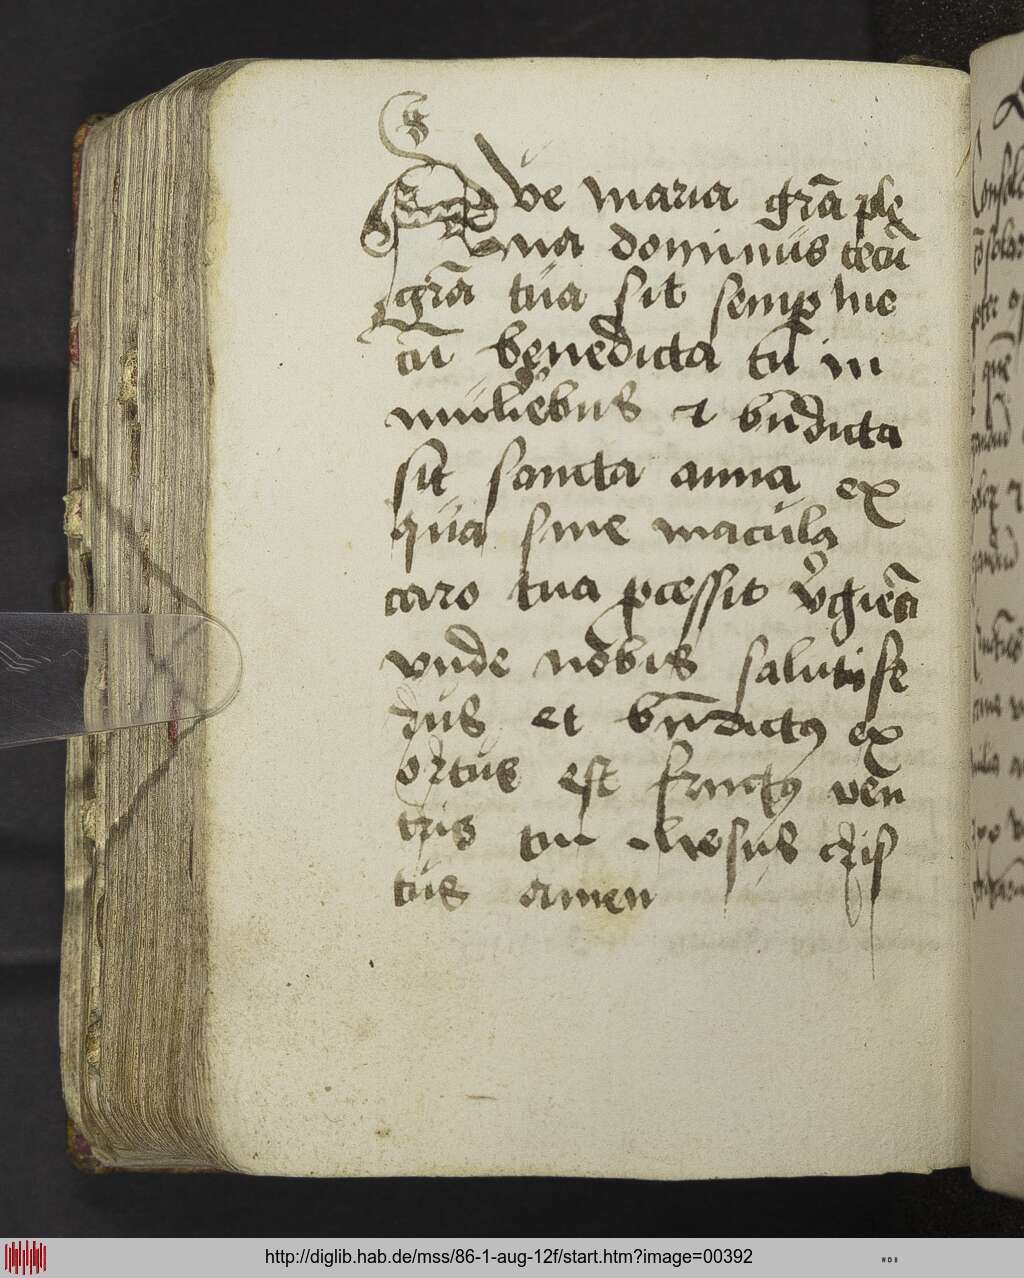 Ave maria grã ple
na dominus tecũ
grã tua sit semp me
cũ benedicta tu in
mulieribus et bñdicta
sit sancta anna ex
qua sine macula
caro tua pcessit
vnde nobis
et bñdictꝰ ex
ortus est fructꝰ ven
tris tui ihesus cris
tus amen
http://diglib.hab.de/mss/86-1-aug-12f/start.htm?image=00392